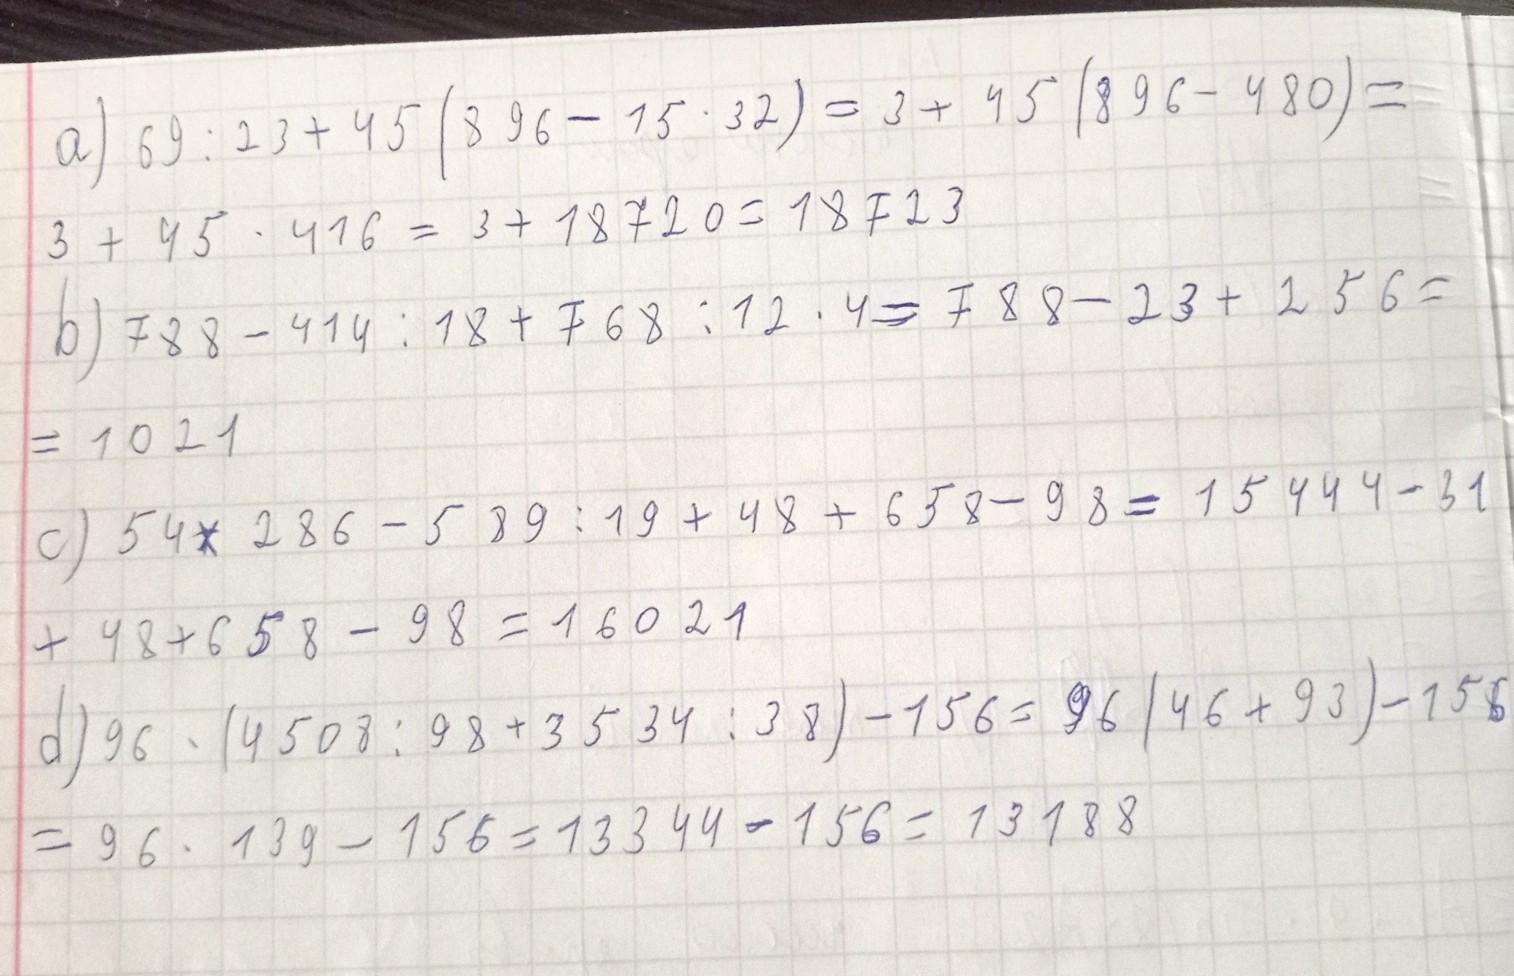 a) 69 : 23 + 45 (896 - 15 · 32) = 3 + 45 (896 - 480) =
3 + 45 · 416 = 3 + 18720 = 18723
b) 788 - 414 : 18 + 768 : 12 · 4 = 788 - 23 + 256 =
= 1021
c) 54 * 286 - 589 : 19 + 48 + 658 - 98 = 15444 - 31
+ 48 + 658 - 98 = 16021
d) 96 · (4508 : 98 + 3534 : 38) - 156 = 96 (46 + 93) - 156
= 96 · 139 - 156 = 13344 - 156 = 13188